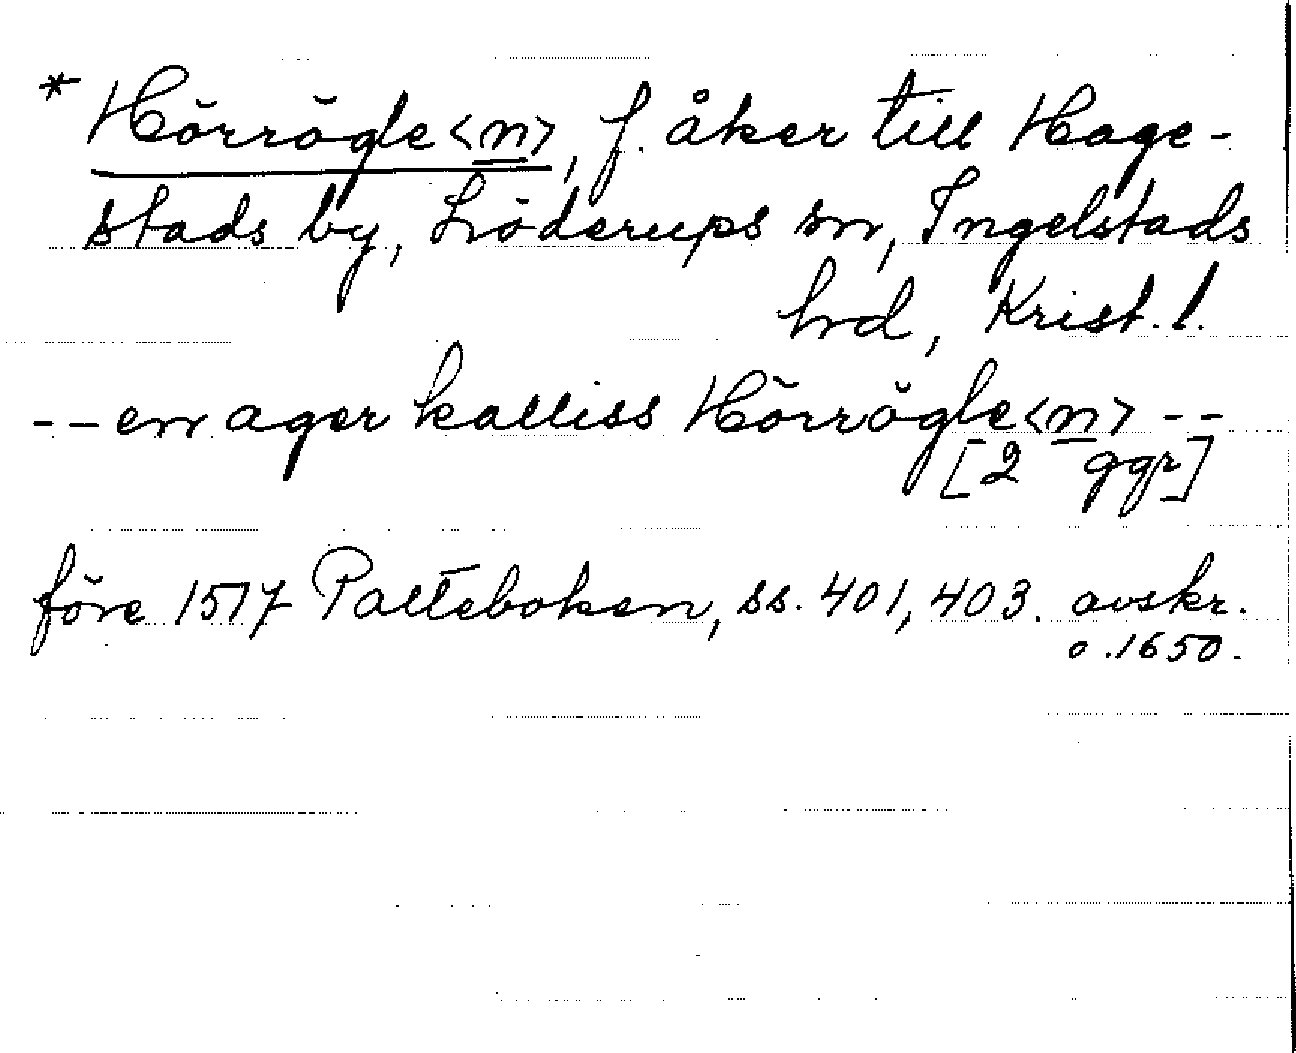 * Hörrögle<n>, f. åker till Hage-
stads by, Löderups sn, Ingelstads
hrd, Krist. l.
-- en ager kalliss Hörrögle<n> --
[2 ggr]
före 1517 Palteboken, ss. 401, 403. avskr.
o. 1650.